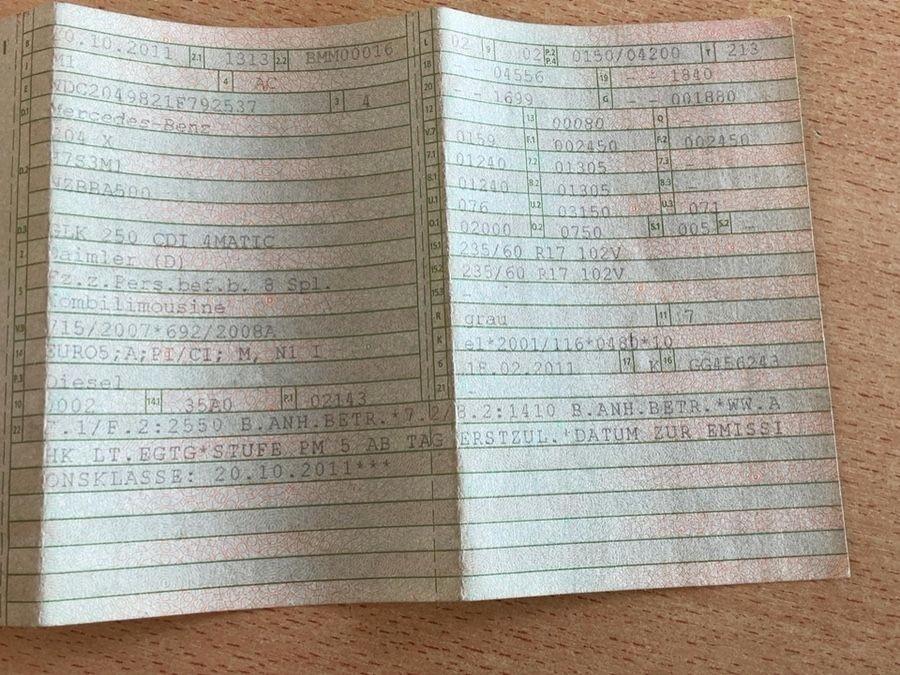 B 20.10.2011 2.1 1313 2.2 BMM00016
J M1 4 AC
E WDC2049821F792537 3 4
D.1 Mercedes-Benz
D.2 204 X
NZBBA500
D.3 GLK 250 CDI 4MATIC
2 Daimler (D)
5 Fz.z.Pers.bef.b. 8 Spl.
Kombilimousine
V.9 715/2007*692/2008A
14 EURO5;A;PI/CI; M, N1 I
P.3 Diesel
10 0002 14.1 35A0 P.1 02143
L 02 9 02 P.2 P.4 0150/04200 T 213
18 - - 04556 19 - - 1840
20 - - 1699 G - - 001880
12 - 13 00080 Q -
V.7 0159 F.1 002450 F.2 002450
7.1 01240 7.2 01305 7.3 -
8.1 01240 8.2 01305 8.3 -
U.1 076 U.2 03150 U.3 071
O.1 02000 O.2 0750 S.1 005 S.2 -
15.1 235/60 R17 102V
15.2 235/60 R17 102V
15.3 -
R grau 11 7
K e1*2001/116*0480*10
6 18.02.2011 17 K 16 GG456243
21 -
22 F.1/F.2:2550 B.ANH.BETR.*7.2/8.2:1410 B.ANH.BETR.*WW.A
HK LT.EGTG*STUFE PM 5 AB TAG ERSTZUL.*DATUM ZUR EMISSI
ONSKLASSE: 20.10.2011***